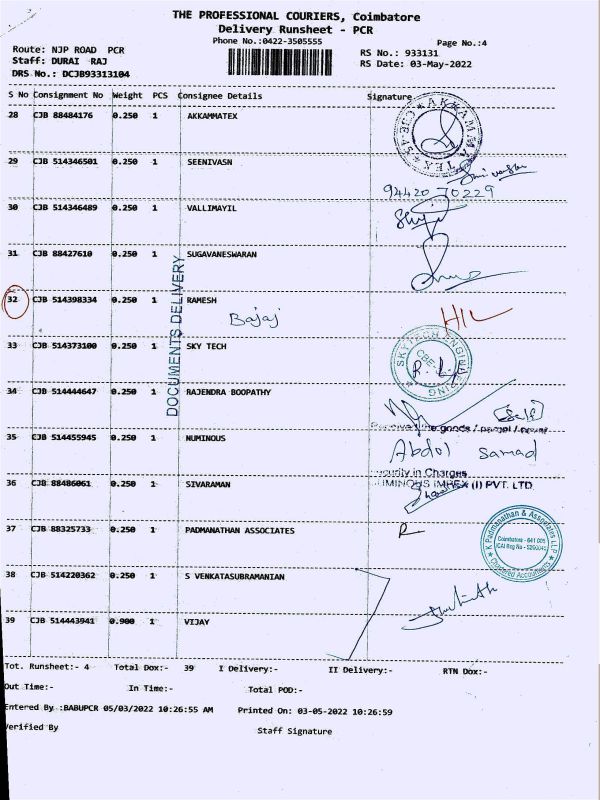 THE PROFESSIONAL COURIERS, Coimbatore
Delivery Runsheet - PCR
Phone No.:0422-3505555
Page No.:4
Route: NJP ROAD PCR
RS No.: 933131
Staff: DURAI RAJ
RS Date: 03-May-2022
DRS No.: DCJB93313104
S No Consignment No Weight PCS Consignee Details Signature
28 CJB 88484176 0.250 1 AKKAMMATEX
AKKAMMA TEX
29 CJB 514346501 0.250 1 SEENIVASN
94420 70229
30 CJB 514346489 0.250 1 VALLIMAYIL
31 CJB 88427610 0.250 1 SUGAVANESWARAN
DOCUMENTS DELIVERY
32 CJB 514398334 0.250 1 RAMESH
Bajaj
33 CJB 514373100 0.250 1 SKY TECH
SKYTECH ENGINEERING
34 CJB 514444647 0.250 1 RAJENDRA BOOPATHY
35 CJB 514455945 0.250 1 NUMINOUS
Abdol Samad
Security in Charges
NUMINOUS IMPEX (I) PVT. LTD
36 CJB 88486061 0.250 1 SIVARAMAN
37 CJB 88325733 0.250 1 PADMANATHAN ASSOCIATES
K Padmanathan & Associates LLP
Coimbatore - 641 005
Chartered Accountants
38 CJB 514220362 0.250 1 S VENKATASUBRAMANIAN
39 CJB 514443941 0.900 1 VIJAY
Tot. Runsheet:- 4 Total Dox:- 39 I Delivery:- II Delivery:- RTN Dox:-
Out Time:- In Time:- Total POD:-
Entered By :BABUPCR 05/03/2022 10:26:55 AM Printed On: 03-05-2022 10:26:59
Verified By Staff Signature